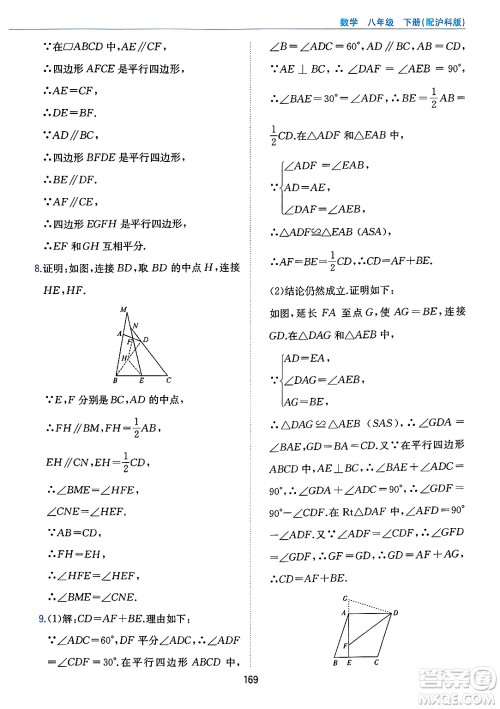 数学 八年级 下册(配沪科版)
∵在▱ABCD中,
∴四边形AFCE是平行四边形,
∴AE=CF,
∴DE=BF.
∵AD∥BC,
∴四边形BFDE是平行四边形,
∴BE∥DF.
∵AF∥CE,
∴四边形EGFH是平行四边形,
∴EF和GH互相平分.
8.证明:如图,连接BD,取BD的中点H,连接
HE,HF.
M
N
A
F
D
H
B
E
C
∵E,F分别是BC,AD的中点,
∴FH∥BM,FH=1/2AB,
EH∥CN,EH=1/2CD,
∴∠BME=∠HFE,
∠CNE=∠HEF.
∵AB=CD,
∴FH=EH,
∴∠HFE=∠HEF,
∴∠BME=∠CNE.
9.(1)解:CD=AF+BE.理由如下:
∵∠ADC=60°,DF平分∠ADC,
∴∠CDF=30°.在平行四边形ABCD中,
∠B=∠ADC=60°,AD∥BC.又∵
AE⊥BC,∴∠DAF=∠AEB=90°,
∴∠BAE=30°=∠ADF,∴BE=1/2AB=
1/2CD.在△ADF和△EAB中,
∵{∠ADF=∠EAB,
AD=AE,
∠DAF=∠AEB,
∴△ADF≌△EAB(ASA),
∴AF=BE=1/2CD,
∴CD=AF+BE.
(2)结论仍然成立.证明如下:
如图,延长FA至点G,使AG=BE,连接
GD.在△DAG和△AEB中,
∵{AD=EA,
∠DAG=∠AEB,
AG=EB,
∴△DAG≌△AEB(SAS),∴∠GDA=
∠BAE,∠G=∠B.又∵在平行四边形
ABCD中,AE⊥BC,∴∠AEB=∠DAE=
90°,∴∠GDA=∠BAE=90°-∠B=
90°-∠ADC.在Rt△DAF中,∠AFD=
90°-∠ADF,∴∠GDF=∠GDA+
∠ADF=90°-∠ADC+∠ADF=90°-
∠CDF.
G
A
D
F
B
E
C
169